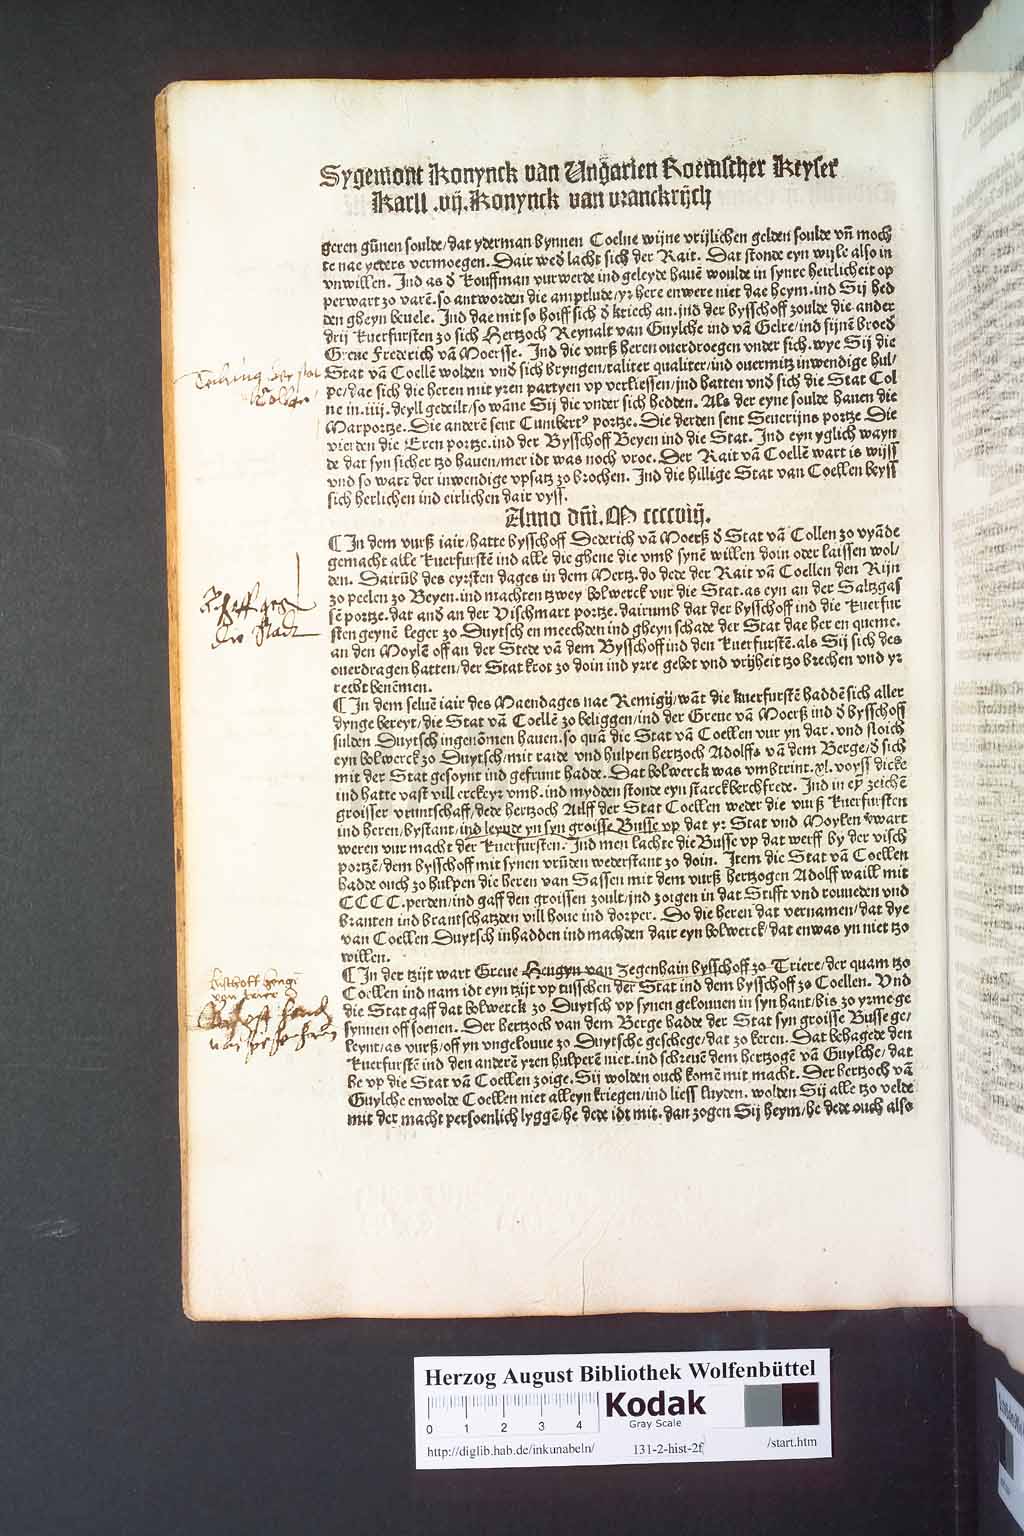 Sygemont Konynck van Ungarien Roemscher Keyser
Karll .vij. Konynck van vranckrijch
geren gūnen soulde/dat yderman bynnen Coelne wijne vrijlichen gelden soulde vñ moch
te nae yeders vermoegen. Dair wed lacht sich der Rait. Dat stonde eyn wijle also in
vnwillen. Ind as d Kouffman vurwerde ind geleyde hauē woulde in synre heirlicheit op
perwart zo varē. so antworden die amptlude/yr here enwere niet dae heym. ind Sij hed
den gheyn beuele. Ind dae mit so hoiff sich d kriech an. jnd der bysschoff zoulde die ander
drij Kuerfursten zo sich Hertzoch Reynalt van Guylche ind vā Gelre/ind sijnē broed
Greue Frederich vā Moersse. Ind die vurß heren ouerdroegen vnder sich. wye Sij die
Stat vā Coellē wolden vnd sich bryngen/taliter qualiter/ind ouermitz inwendige hul/
pe/dae sich die heren mit yren partyen vp verliessen/jnd hatten vnd sich die Stat Col
ne in .iiij. deyll gedeilt/so wāne Sij die vnder sich hedden. Als der eyne soulde hauen die
Marportze. Die anderē sent Cunibertꝰ portze. Die derden sent Seuerijns portze Die
vierden die Eren portze. ind der Bysschoff Beyen ind die Stat. Ind eyn yglich wayn
de dat syn sicher tzo hauen/mer idt was noch vroe. Der Rait vā Coellē wart is wijss
vnd so wart der inwendige vpsatz zo brochen. Ind die hillige Stat van Coellen beyss
sich herlichen ind eirlichen dair vyss.
Anno dñi. M ccccviij.
¶ In dem vurß iair/hatte bysschoff Dederich vā Moerß d Stat vā Collen zo vyāde
gemacht alle Kuerfurstē ind alle die ghene die vmb synē willen doin oder laissen wol/
den. Dairūb des eyrsten dages in dem Mertz. do dede der Rait vā Coellen den Rijn
zo peelen zo Beyen. ind machten tzwey bolwerck vur die Stat. as eyn an der Saltzgas
sē portze. dat and an der Vischmart portze. dairumb dat der bysschoff ind die Kuerfur
sten geynē leger zo Duytsch en meechden ind gheyn schade der Stat dae her en queme.
an den Moylē off an der Stede vā dem Bysschoff ind den Kuerfurstē. als Sij sich des
ouerdragen hatten/der Stat krot zo doin ind yrre gebot vnd vrijheit tzo brechen vnd yr
recht benēmen.
¶ In dem seluē iair des Maendages nae Remigij/wāt die kuerfurstē haddē sich aller
dynge bereyt/die Stat vā Coellē zo beliggen/ind der Greue vā Moerß ind d bysschoff
sulden Duytsch ingenōmen hauen. so quā die Stat vā Coellen vur yn dar. vnd sloich
eyn bolwerck zo Duytsch/mit raide vnd hulpen hertzoch Adolffs vā dem Berge/d sich
mit der Stat gesoynt ind gefrunt hadde. Dat bolwerck was vmbtrint .xl. voyss dicke
ind hatte vast vill erckeyr vmb. ind mydden stonde eyn starckberchfrede. Ind in eȳ zeichē
groisser vruntschaff/dede hertzoch Ailff der Stat Coellen weder die vurß kuerfursten
ind heren/bystant/ind leyude yn syn groisse Busse vp dat yr Stat vnd Moylen vwart
weren vur macht der Kuerfursten. Ind men lachte die Busse vp dat werff by der visch
portzē/dem bysschoff mit synen vrūden wederstant zo doin. Item die Stat vā Coellen
hadde ouch zo hulpen die heren van Sassen mit dem vurß hertzogen Adolff waill mit
CCCC. perden/ind gaff den groissen zoult/jnd zoigen in dat Stifft vnd rouueden vnd
branten ind brantschatzden vill houe ind dorper. Do die heren dat vernamen/dat dye
van Coellen Duytsch inhadden ind machden dair eyn bolwerck/dat enwas yn niet tzo
willen.
¶ In der tzijt wart Greue Heugyn van Zegenhain bysschoff zo Triere/der quam tzo
Coellen ind nam idt eyn tzijt vp tusschen der Stat ind dem bysschoff zo Coellen. Vnd
die Stat gaff dat bolwerck zo Duytsch vp synen gelouuen in syn hant/bis zo yrme ge
synnen off soenen. Der hertzoch van dem Berge hadde der Stat syn groisse Busse ge/
leynt/as vurß/off yn vngelouue zo Duytsche geschege/dat zo keren. Dat behagede den
Kuerfurstē ind den anderē yren hulperē niet. ind schreuē dem hertzogē vā Guylche/dat
he vp die Stat vā Coellen zoige. Sij wolden ouch komē mit macht. Der hertzoch vā
Guylche enwolde Coellen niet alleyn kriegen/ind liess luyden. wolden Sij alle tzo velde
mit der macht persoenlich lyggē/he dede idt mit. dan zogen Sij heym/he dede ouch also
Herzog August Bibliothek Wolfenbüttel
0 1 2 3 4
Kodak
Gray Scale
http://diglib.hab.de/inkunabeln/ 131-2-hist-2f /start.htm